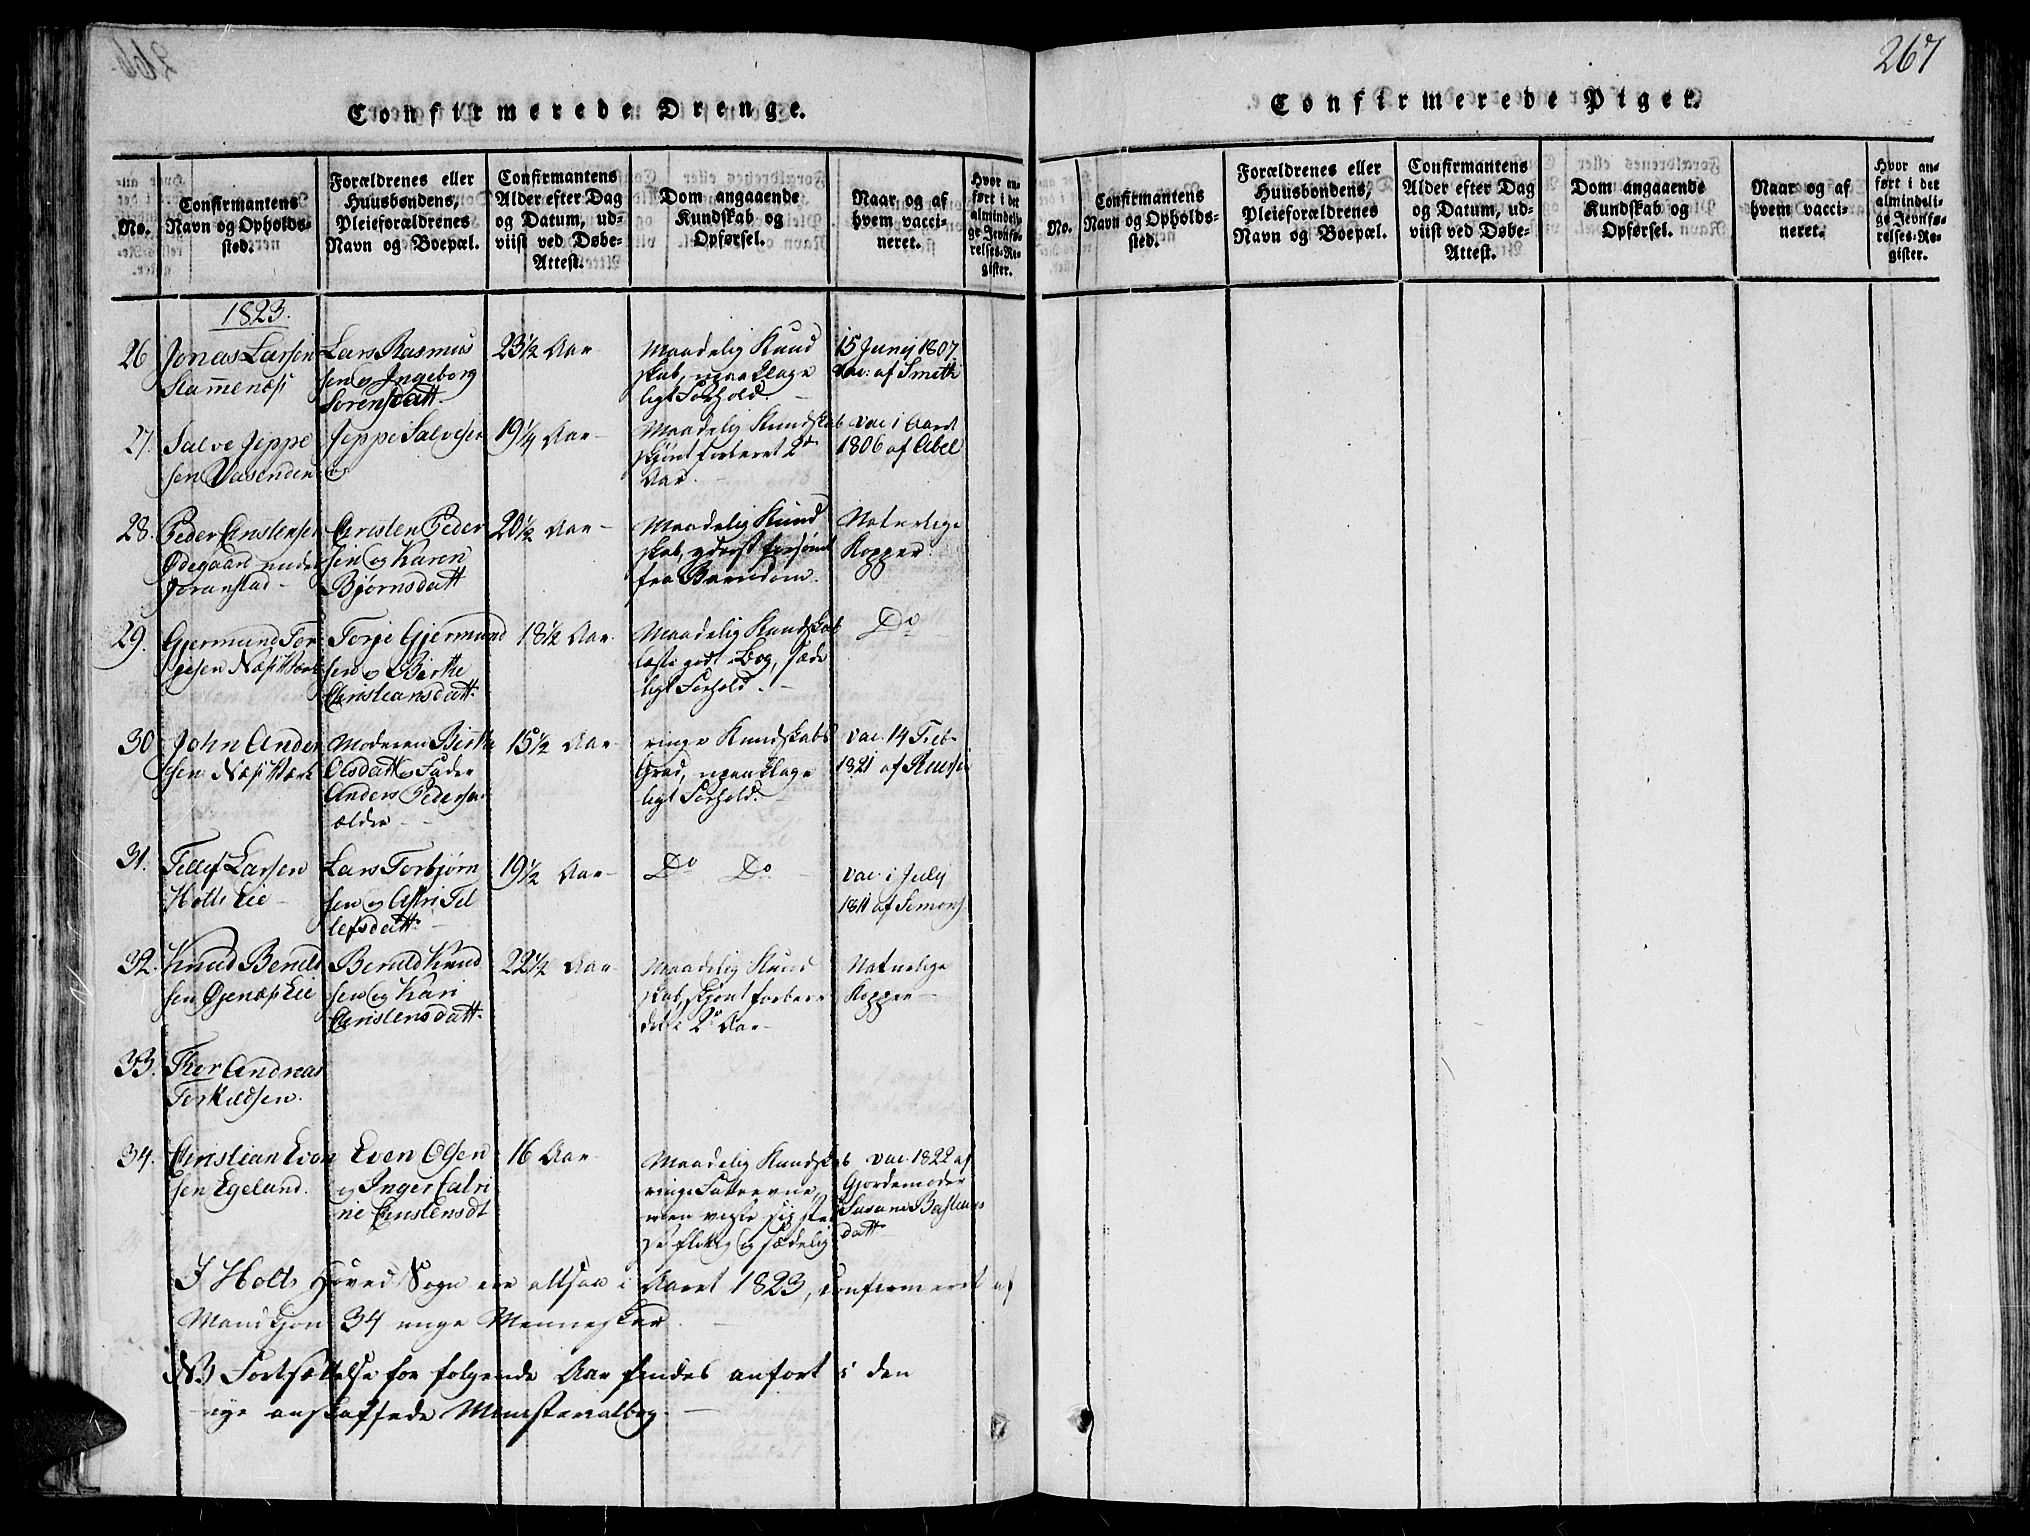 267
Confirmerede Drenge.
No.
Confirmantens
Navn og Opholds-
sted.
Forældrenes eller
Huusbondens,
Pleieforældrenes
Navn og Boepæl.
Confirmantens
Alder efter Dag
og Datum, ud-
viist ved Døbe-
Attest.
Dom angaaende
Kundskab og
Opførsel.
Naar og af
hvem vacci-
neret.
Hvor an-
ført i det
almindeli-
ge Jevnfø-
relses-Re-
gister.
1823.
26
Jonas Larsen
Lars Rasmus
sen og Ingeborg
Sørensdatt
23½ Aar
Maadelig Kund
skab, upaaklage
ligt Forhold.
15 Junij 1807
vac: af Smith
27.
Salve Jeppe
sen Vasenden
Jeppe Salvesen
og
19¼ Aar
Maadelig Kundskab
skjønt forberet 2de
Aar.
vac i Aaret
1806 af Abel
28.
Peder Christensen
Ødegaard under
Joranstad
Christen Peder
sen og Karen
Bjørnsdatt
20½ Aar
Maadelig Kund
skab, yderst forsømt
fra Barndom.
Naturlige
Kopper
29.
Gjermund Tor
gesen Næs Værk
Torje Gjermund
sen og Birthe
Christiansdatt.
18½ Aar.
Maadelig Kundskab
læste godt i Bog, sæde
ligt Forhold.
Do
30
John Ander
sen Næs Værk
Moderen Birthe
Olsdatt Fader
Anders Pedersen
ældre
15½ Aar
ringe Kundskabs
Grad, upaaklage
ligt Forhold.
vac. 14 Feb.
1821 af
31.
Tellef Larsen
Holts Eie
Lars Torbjørn
sen og Astri Tel
lefsdatt.
19½ Aar
Do Do
vac. i July
1811 af Simons
32.
Knud Bendt
sen Gjenæs Eie
Bendt Knud
sen og Kari
Christensdatt.
22½ Aar
Maadelig Kund
skab, skjønt forbere
det i 2de Aar
Naturlige
Kopper
33.
Ther Andreas
Torkildsen.
34.
Christian Even
sen Egeland.
Even Olsen
og Inger Catri
ne Christensdt
16 Aar
Maadelig Kundskab
ringe Fatteevne,
men viste sig
flittig og sædelig
vac. 1822 af
Gjordemoder
Susane Bastians
datt
I Holts Hoved Sogn ere altsaa i Aaret 1823, confirmeret af
Mandkjøn 34 unge Mennesker.
NB Fortsættelse for følgende Aar findes anført i den
nye anskaffede Ministerialbog.
Confirmerede Piger.
No.
Confirmantens
Navn og Opholds-
sted.
Forældrenes eller
Huusbondens,
Pleieforældrenes
Navn og Boepæl.
Confirmantens
Alder efter Dag
og Datum, ud-
viist ved Døbe-
Attest.
Dom angaaende
Kundskab og
Opførsel.
Naar og af
hvem vacci-
neret.
Hvor an-
ført i det
almindeli-
ge Jevnfø-
relses-Re-
gister.